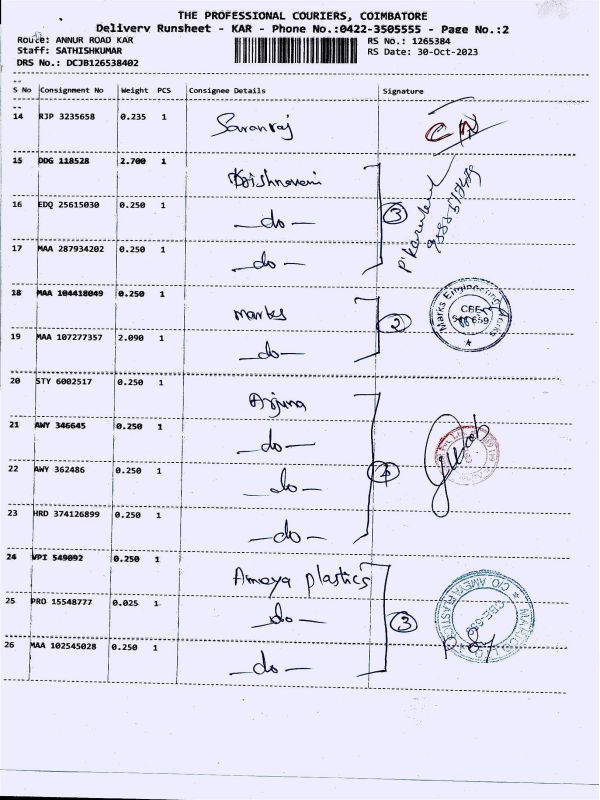 THE PROFESSIONAL COURIERS, COIMBATORE
Delivery Runsheet - KAR - Phone No.:0422-3505555 - Page No.:2
Route: ANNUR ROAD KAR
RS No.: 1265384
Staff: SATHISHKUMAR
RS Date: 30-Oct-2023
DRS No.: DCJB126538402
S No Consignment No Weight PCS Consignee Details Signature
14 RJP 3235658 0.235 1 Saranraj
15 DDG 118528 2.700 1 Krishnaveni
16 EDQ 25615030 0.250 1 —do— 3
17 MAA 287934202 0.250 1 —do—
18 MAA 104418049 0.250 1 Marks
2
Marks Engineering Works
CBE
19 MAA 107277357 2.090 1 —do—
20 STY 6002517 0.250 1 Arjuna
21 AWY 346645 0.250 1 —do—
22 AWY 362486 0.250 1 —do—
23 HRD 374126899 0.250 1 —do—
24 VPI 549092 0.250 1 Ameya plastics
25 PRO 15548777 0.025 1 —do— 3
C/O AMEYA PLASTICS
CBE-659
26 MAA 102545028 0.250 1 —do—